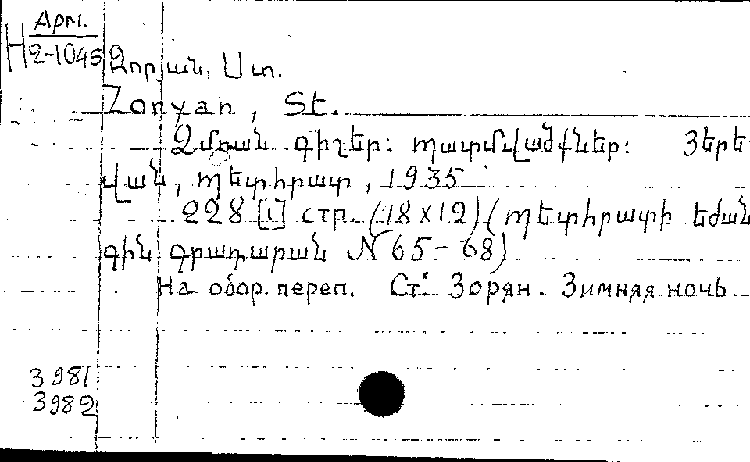 Арм.
Н 2-1045
Զորյան, Ստ.
Zoryan, St.
Ձմռան գիշեր: պատմվածքներ: Յերե
վան, Պետհրատ, 1935
228 [1] стр. (18 x 12) (Պետհրատի եժան
գին գրադարան N 65-68)
На обор. переп. Ст. Зорян. Зимняя ночь
3981
3982